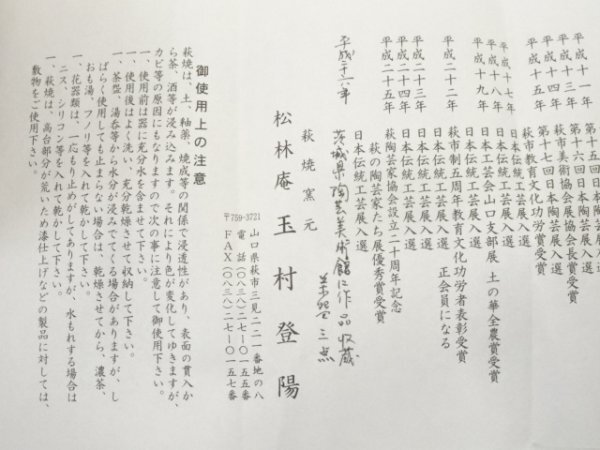 平成十一年　第十五回日本陶芸展入選
平成十三年　第十六回日本陶芸展入選
平成十四年　萩市美術協会展協会長賞受賞
第十七回日本陶芸展入選
平成十五年　日本伝統工芸展入選
萩市教育文化功労賞受賞
平成十七年　日本伝統工芸展入選
平成十八年　日本工芸会山口支部展　土の華全農賞受賞
平成十九年　日本伝統工芸展入選
日本工芸会　正会員になる
平成二十二年　萩市制五周年教育文化功労者表彰受賞
日本伝統工芸展入選
平成二十三年　日本伝統工芸展入選
平成二十四年　萩陶芸家協会設立二十周年記念
萩の陶芸家たち展優秀賞受賞
平成二十五年　日本伝統工芸展入選
平成二十六年　茨城県陶芸美術館に作品収蔵
茶盌三点
萩焼窯元
松林庵　玉村登陽
〒759-3721　山口県萩市三見二二二一番地の八
電話（〇八三八）二七―〇一五五番
FAX（〇八三八）二七―〇一五七番
御使用上の注意
萩焼は、土、釉薬、焼成等の関係で浸透性があり、表面の貫入か
ら茶、酒等が浸み込みます。それにより色が変化してゆきますが、
カビ等の原因にもなりますので次の事に注意して御使用下さい。
一、使用前は器に充分水を含ませて下さい。
一、使用後はよく洗い、充分乾燥させて収納して下さい。
一、茶盌、湯呑等から水分が浸みでてくる場合がありますが、し
ばらく使用しても止まらない場合は、乾燥させてから、濃茶、
おも湯、フノリ等を入れて乾かして下さい。
一、花器類は、一応もり止めがしてありますが、水もれする場合は
ニス、シリコン等を入れて乾かして下さい。
一、萩焼は、高台部分が荒いため漆仕上げなどの製品に対しては、
敷物をご使用下さい。